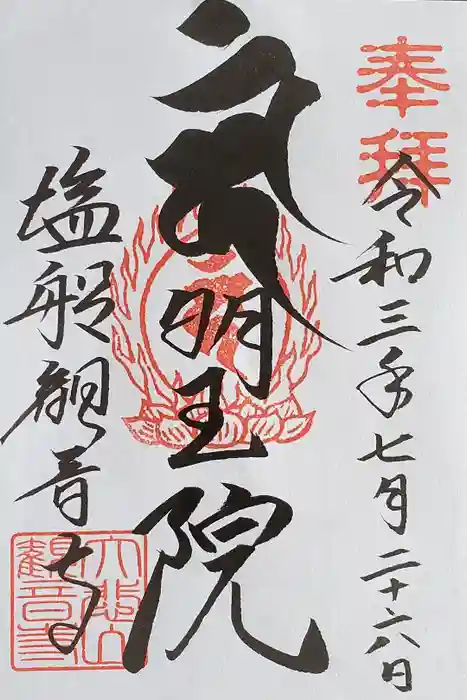 奉拝
令和三年七月二十六日
明王院
塩船観音寺
大悲山
觀音寺